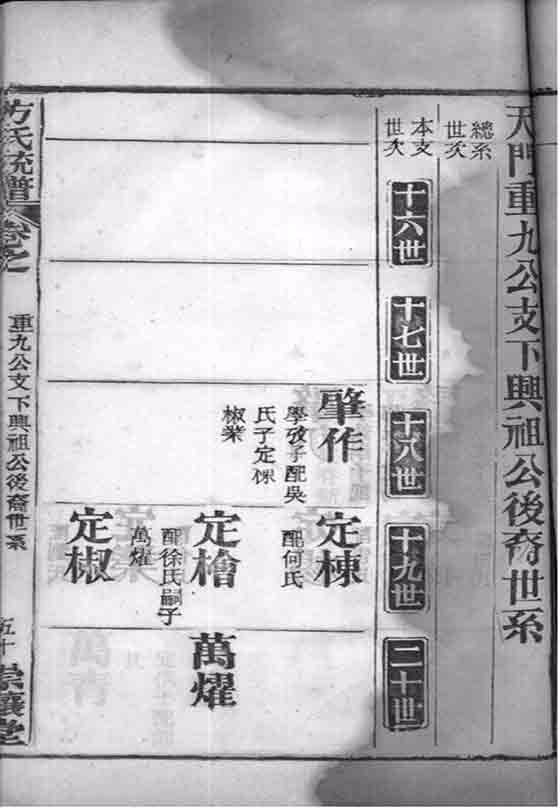 天門重九公支下興祖公後裔世系
總系
世次
本支
世次
十六世
十七世
十八世
十九世
二十世
肇作
學孜子配吳
氏子定棟
椒業
定棟
配何氏
定檜
配徐氏嗣子
萬燿
定椒
萬燿
方氏統譜
卷之
重九公支下興祖公後裔世系
五十
崇讓堂